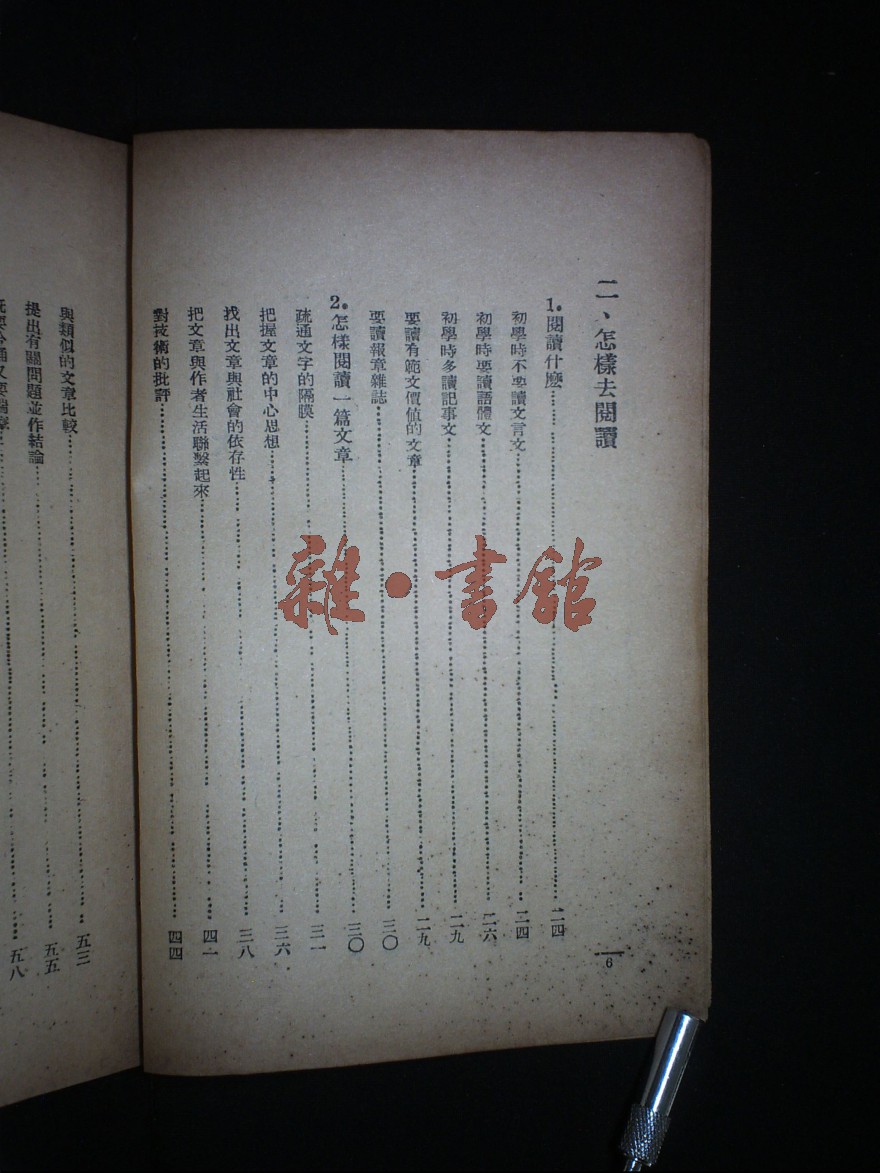 二、怎樣去閱讀
1.閱讀什麼……二四
初學時不要讀文言文……二四
初學時要讀語體文……二六
初學時多讀記事文……二九
要讀有範文價值的文章……二九
要讀報章雜誌……三〇
2.怎樣閱讀一篇文章……三〇
疏通文字的隔膜……三一
把握文章的中心思想……三六
找出文章與社會的依存性……三八
把文章與作者生活聯繫起來……四一
對技術的批評……四四
6
與類似的文章比較……五三
提出有關問題並作結論……五五
五八
雜·書館